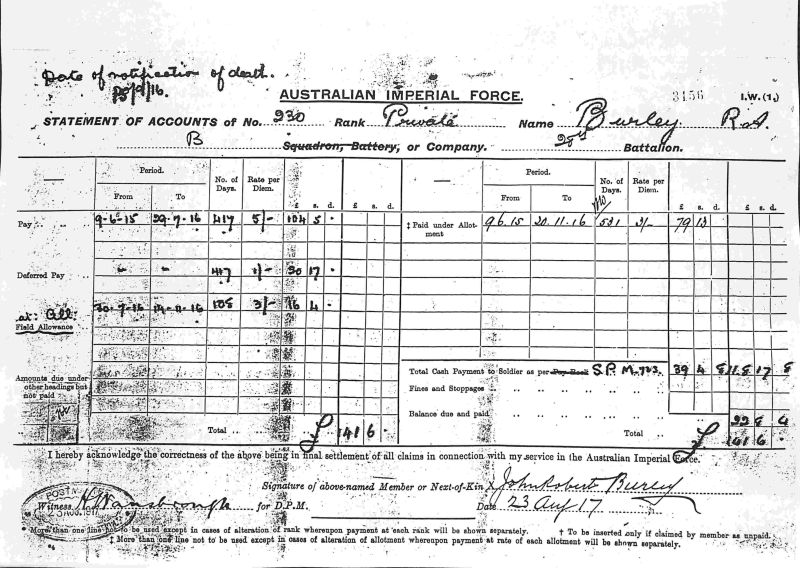 Date of notification of death.
AUSTRALIAN IMPERIAL FORCE.
3456
I.W.(1.)
STATEMENT OF ACCOUNTS of No. 930 Rank Private Name Burley R.A.
B Squadron, Battery, or Company. 28th Battalion.
Period. No. of Days. Rate per Diem. £ s. d. £ s. d. Period. No. of Days. Rate per Diem. £ s. d. £ s. d.
From To From To
Pay .. .. 9-6-15 29-7-16 417 5/- 104 5 . ‡ Paid under Allotment 9.6.15 20.11.16 531 3/- 79 13
Deferred Pay .. .. " " 417 1/- 20 17 .
at: All: 30-7-16 14-11-16 108 3/- 16 4 .
Field Allowance
Amounts due under other headings but not paid
Total Cash Payment to Soldier as per Pay Book S.P. M. 723. 39 4 8 118 17 8
Fines and Stoppages .. .. .. .. ..
Balance due and paid .. .. .. .. .. 22 8 4
Total .. .. £ 141 6 . Total .. £ 141 6 .
I hereby acknowledge the correctness of the above being in final settlement of all claims in connection with my service in the Australian Imperial Force.
Signature of above-named Member or Next-of-Kin x John Robert Burley
Witness for D.P.M. Date 23 Aug 17
* More than one line not to be used except in cases of alteration of rank whereupon payment at each rank will be shown separately. † To be inserted only if claimed by member as unpaid.
‡ More than one line not to be used except in cases of alteration of allotment whereupon payment at rate of each allotment will be shown separately.